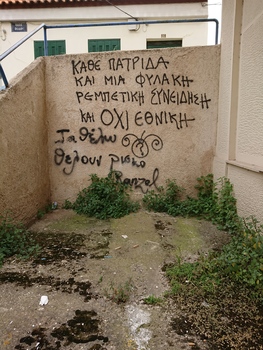 ΚΑΘΕ ΠΑΤΡΙΔΑ
ΚΑΙ ΜΙΑ ΦΥΛΑΚΗ
ΡΕΜΠΕΤΙΚΗ ΣΥΝΕΙΔΗΣΗ
ΚΑΙ ΟΧΙ ΕΘΝΙΚΗ
Τα θέλω
θέλουν ρισκο